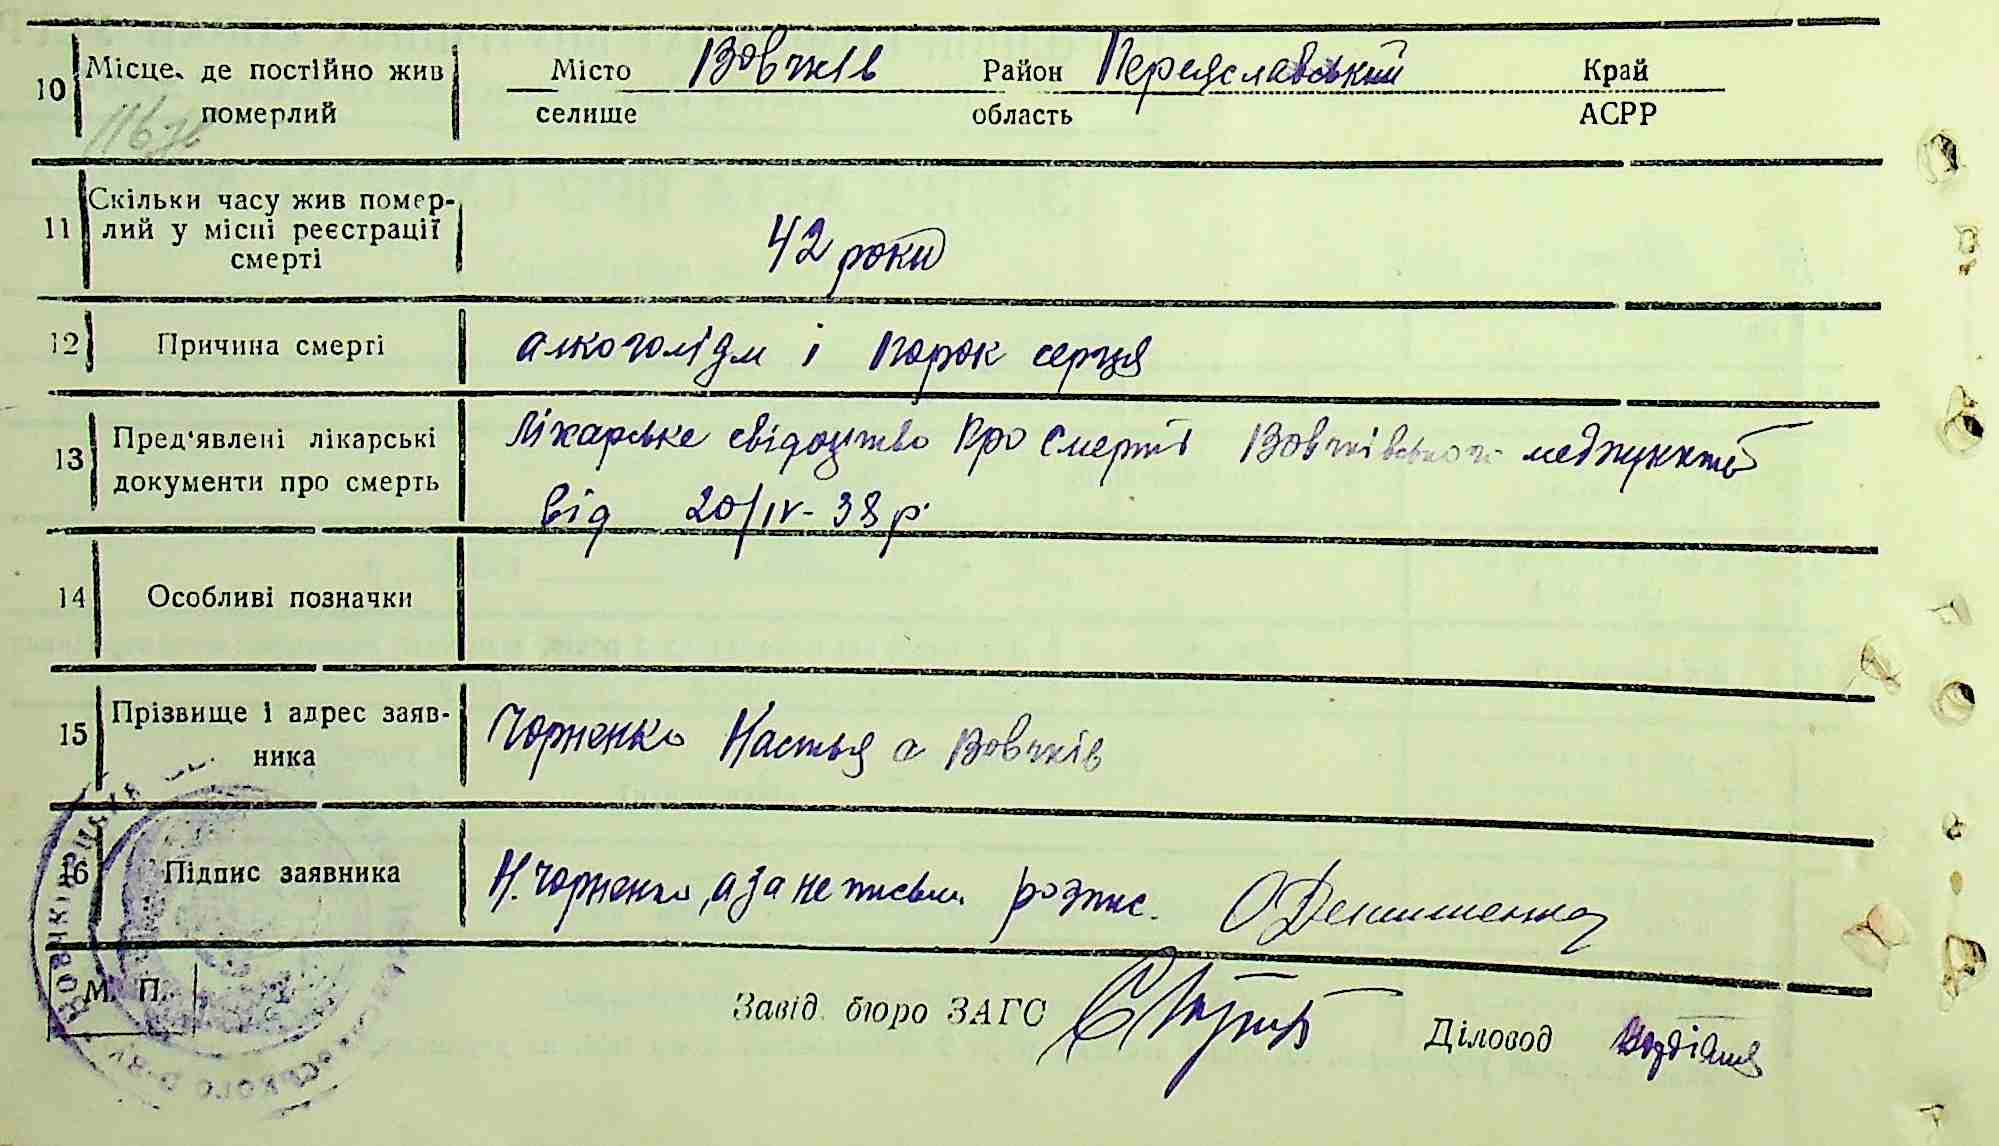 10 Місце, де постійно жив померлий
Місто селище Вовчків Район область Переяславський Край АСРР
116
11 Скільки часу жив помер-
лий у місці реєстрації
смерті
42 роки
12 Причина смерті алкоголізм і порок серця
13 Пред'явлені лікарські
документи про смерть
Лікарське свідоцтво про смерть Вовчківського медпункту
від 20/IV-38 р.
14 Особливі позначки
15 Прізвище і адрес заяв-
ника
Чорненко Настья с Вовчків
16 Підпис заявника Н. Чорненко, а за не письм. розпис.
М. П.
Завід. бюро ЗАГС Діловод